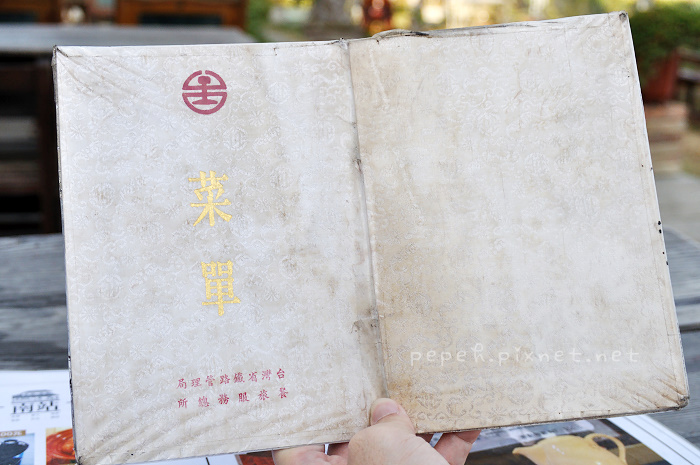 菜單
台灣省鐵路管理局
餐旅服務總所
pepeh.pixnet.net
南站